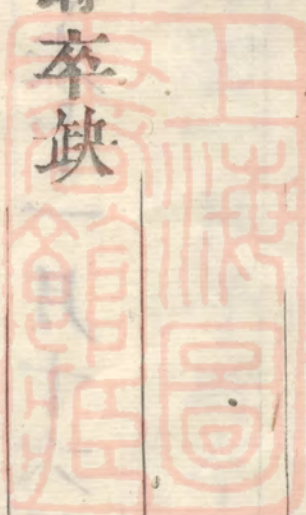 卒缺
上海圖
書館藏